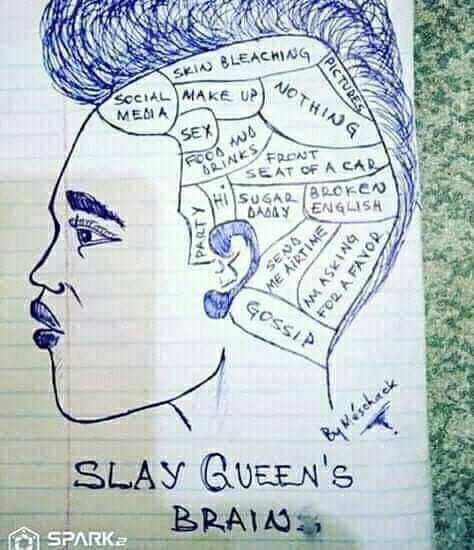 SKIN BLEACHING
PICTURES
SOCIAL
MEDIA
MAKE UP
NOTHING
SEX
FOOD AND
DRINKS
FRONT
SEAT OF A CAR
PARTY
Hi
SUGAR
DADDY
BROKEN
ENGLISH
SEND
ME AIRTIME
AM ASKING
FOR A FAVOR
GOSSIP
By Méschack
SLAY QUEEN'S
BRAIN
SPARK2